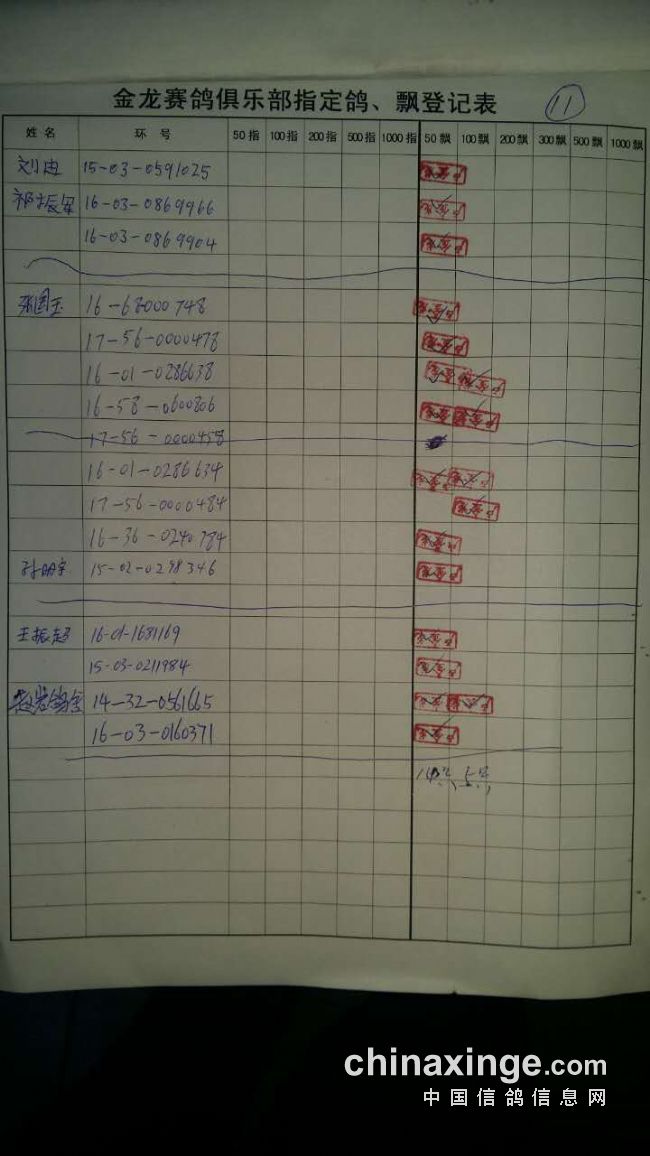 金龙赛鸽俱乐部指定鸽、飘登记表 11
姓名 环号 50指 100指 200指 500指 1000指 50飘 100飘 200飘 300飘 500飘 1000飘
15-03-0591025
祁振军 16-03-0869966
16-03-0869904
张国玉 16-68000748
17-56-0000478
16-01-0286638
16-58-0600806
17-56-0000458
16-01-0286634
17-56-0000484
16-36-0240784
孙明宇 15-02-0298346
王振超 16-01-1681169
15-03-0211984
14-32-0561665
16-03-0160371
chinaxinge.com
中国信鸽信息网